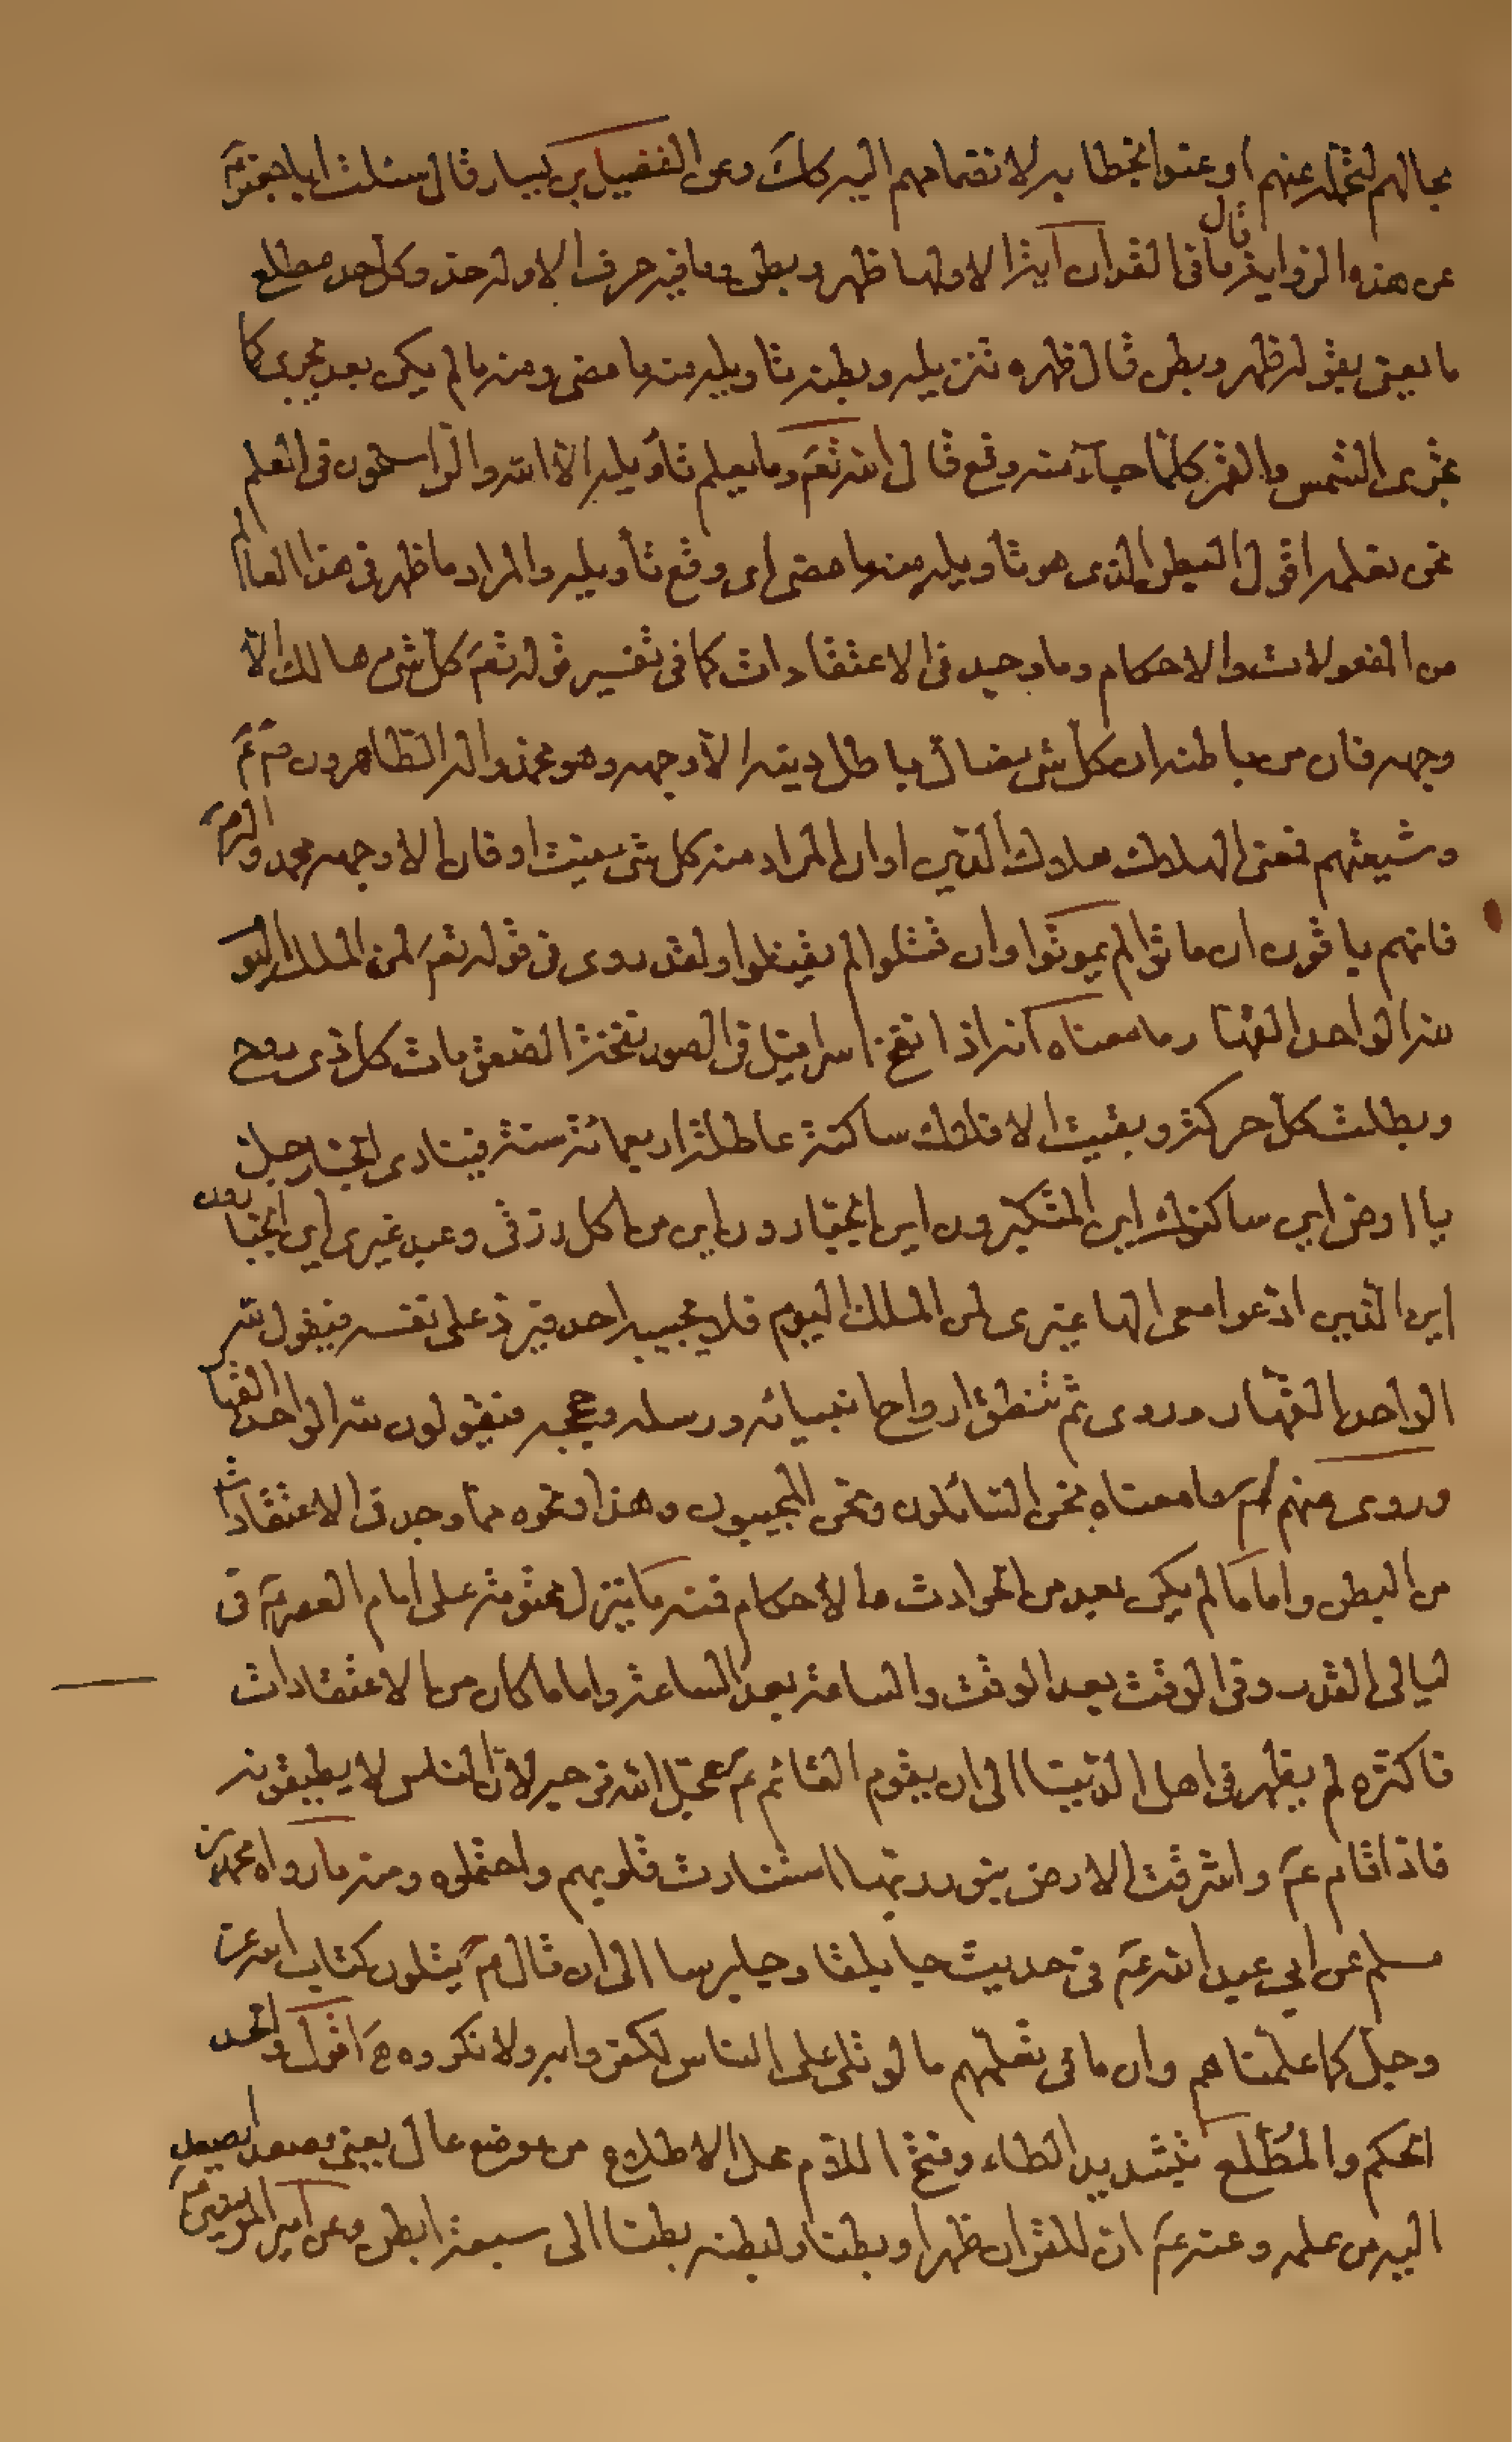 بحالهم لتحمله عنهم او عنوا بخطابه لانضمامهم اليه كك وعن الفضيل بن يسار قال سئلت ابا جعفر عم
عن هذه الرواية قال ما فى القران اية الا ولها ظهر وبطن وما فيه حرف الا وله حد وكل حد مطلع
ما يعنى بقوله ظهر وبطن قال ظهره تنزيله وبطنه تاويله منه ما مضى ومنه ما لم يكن بعد يجرى كا
يجرى الشمس والقمر كلما جاء منه وقع قال الله تعم وما يعلم تأويله الا الله والراسخون فى العلم
نحن نعلمه اقول البطن الذى هو تأويله منه ما مضى اى وقع تأويله والمراد ما ظهر فى هذا العالم
من المفعولات والاحكام وما وجد فى الاعتقادات كما فى تفسير قوله تعم كل شىء هالك الا
وجهه فان من باطنه ان كل شىء يضال باطل دينه الا وجهه وهو محمد واله الطاهرون عم
وشيعتهم فمعنى الهلاك هلاك الدين او ان المراد منه كل شىء ميت او فان الا وجهه محمد واله
فانهم باقون ان ماتوا لم يموتوا وان قتلوا لم يقتلوا ولقد روى فى قوله تعم لمن الملك اليو
لله الواحد القها ر ما معناه انه اذا نفخ اسرافيل فى الصور نفخة الصعق مات كل ذى روح
وبطلت كل حركة وبقيت الافلاك ساكنة عاطلة اربعمائة سنة فينادى الجبار جل
يا ارض اين ساكنوك اين المتكبرون اين الجبارون اين من اكل رزقى وعبد غيرى اين الجبارون
اين الذين ادعوا معى الها غيرى لمن الملك اليوم فلا يجيبه احد فيرد على نفسه فيقول لله
الواحد القهار وروى ثم تنطق ارواح انبيائه ورسله وحججه فيقولون لله الواحد القها
وروى عنهم عم ما معناه نحن السائلون ونحن المجيبون وهذا ونحوه مما وجد فى الاعتقادات
من البطن واما ما لم يكن بعد من الحوادث والاحكام فمنه ما ينزل محتومة على امام العصر عم فى
ليالى القدر وفى الوقت بعد الوقت والساعة بعد الساعة واما ما كان من الاعتقادات
فاكثره لم يظهر فى اهل الدنيا الى ان يقوم القائم عم عجل الله فرجه لان الناس لا يطيقونه
فاذا قام عم واشرقت الارض بنور ربها استنارت قلوبهم واحتملوه ومنه ما رواه محمد بن
مسلم عن ابى عبد الله عم فى حديث جابلقا وجابرسا الى ان قال عم يتلون كتاب الله عز
وجل كما علمناهم وان ما فى تعلمهم ما لو تلى على الناس لكفروا به ولانكروه اقول والحد
الحكم والمطلع بتشديد الطاء وفتح اللام محل الاطلاع من موضع عال يعنى مصعد يصعد
اليه من علمه وعنه عم ان للقران ظهرا وبطنا ولبطنه بطنا الى سبعة ابطن وعن امير المؤمنين عم